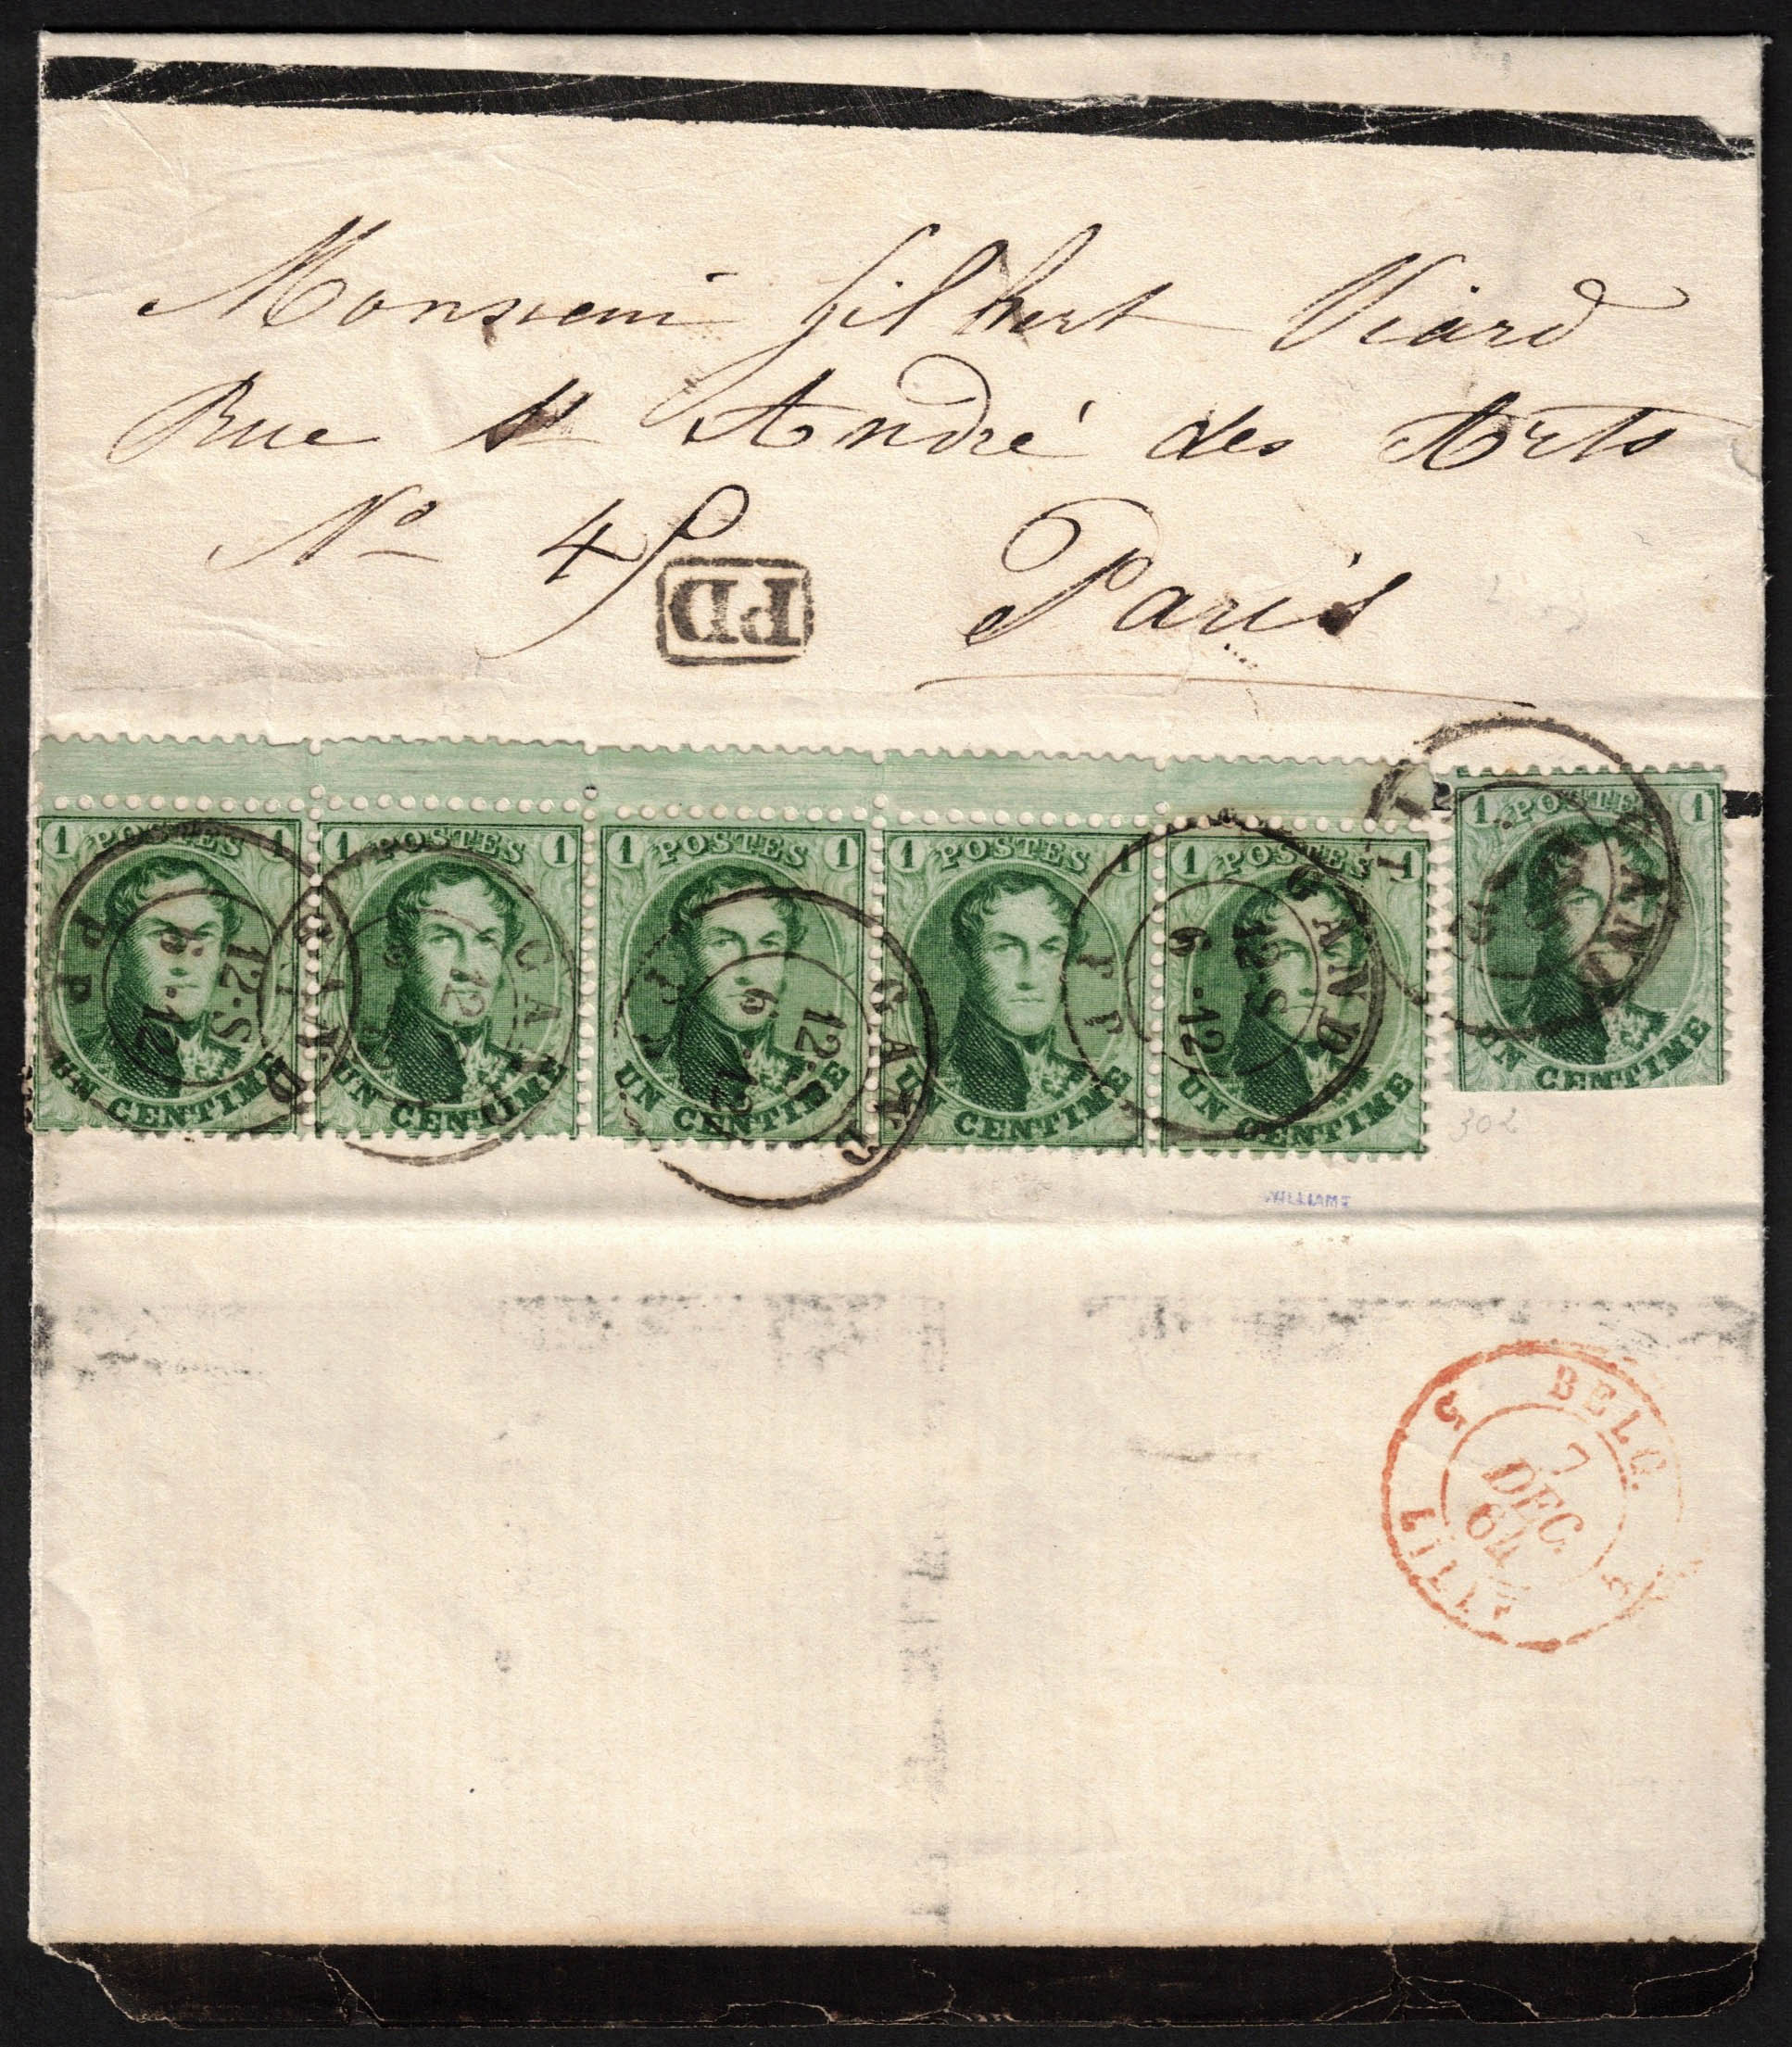 Monsieur Gilbert Viard
Rue St André des Arts
No 45
Paris
PD
1 POSTES 1
UN CENTIME
1 POSTES 1
UN CENTIME
1 POSTES 1
UN CENTIME
1 POSTES 1
UN CENTIME
1 POSTES 1
UN CENTIME
1 POSTES 1
UN CENTIME
GAND
12-S
6-12
PP
GAND
12
GAND
12
6
GAND
12-S
6-12
GAND
302
WILLIAMS
BELG.
7
DEC.
64
LILLE